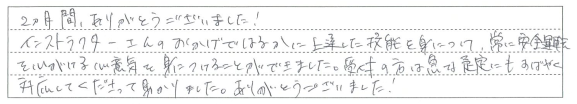 2ヵ月間、ありがとうございました!
インストラクターさんのおかげではるかに上達した技能を身につけ、常に安全運転
を心がける心意気を身につけることができました。受付の方は急な予定にもすばやく
対応してくださって助かりました。ありがとうございました!